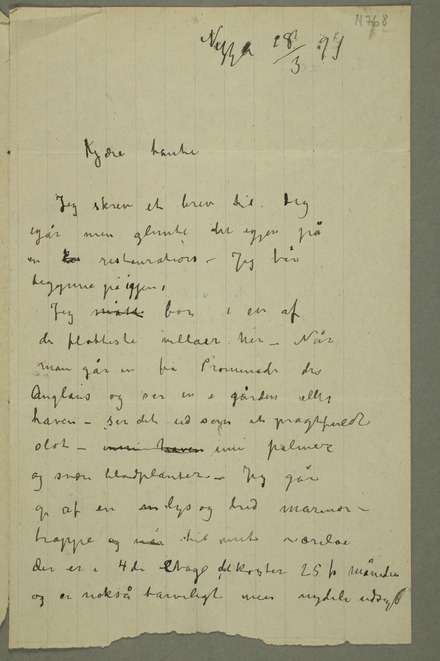 N 768
Nizza 28/3 91
Kjære tante
Jeg skrev et brev til dig
igår men glemte det igjen på
en restauration – Jeg bør
begynne på igjen,
Jeg måtte bor i en af
de flotteste villaer her – Når
man går en fra Promenade des
Anglais og ser en i gården eller
haven – ser det ud som et pragtfuldt
slot – inni haven inni palmer
og svære bladplanter – Jeg går
op af en lys og bred marmor –
trappe og når til mit værelse
der er i 4de etage, det koster 25 fr måneden
og er nokså tarveligt men nydelig udsigt